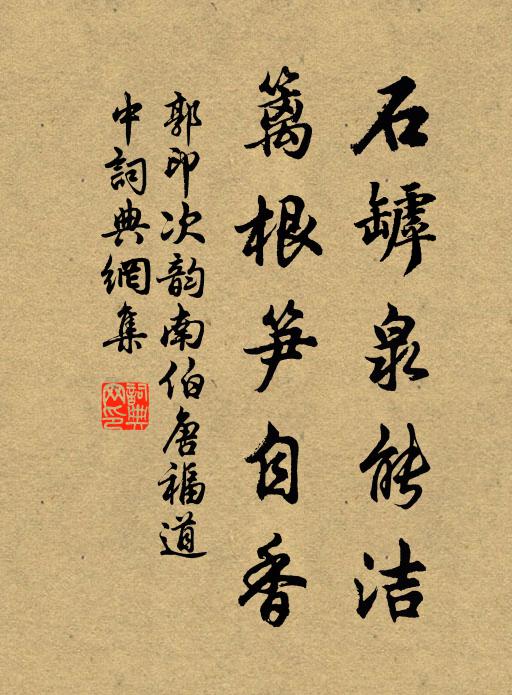 石罅泉能洁
篱根笋自香
郭印次韵南伯唐福道
中詞典網集
詞典
网印